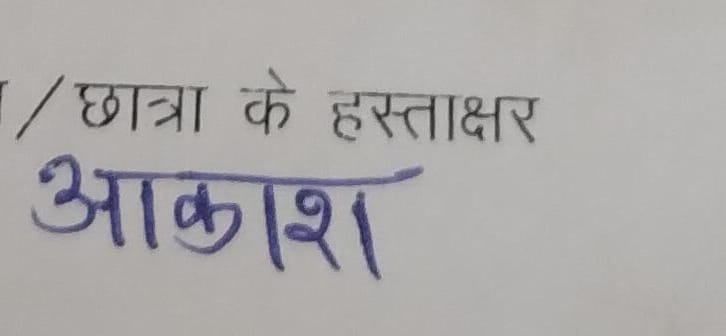 /छात्रा के हस्ताक्षर
आकाश